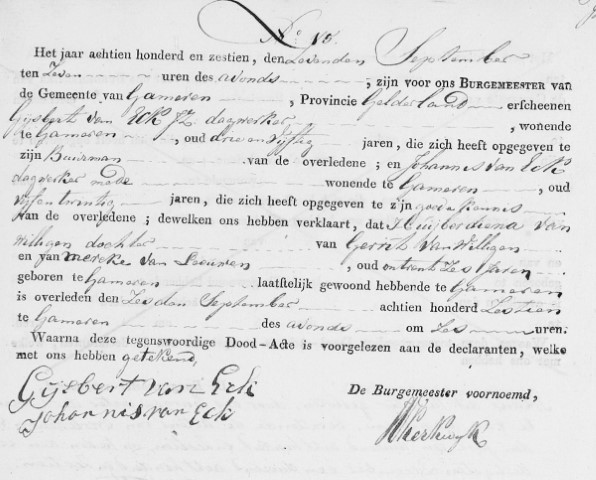 N.º 18.
Het jaar achtien honderd en zestien, den zevenden September
ten zeven uren des avonds, zijn voor ons BURGEMEESTER van
de Gemeente van Gameren, Provincie Gelderland erscheenen
Gijsbert van Eck JZ dagwerker, wonende
te Gameren, oud drie en vijftig jaren, die zich heeft opgegeven te
zijn Buurman van de overledene; en Johannis van Eck
dagwerker mede wonende te Gameren, oud
vijfentwintig jaren, die zich heeft opgegeven te zijn goede kennis
van de overledene; dewelken ons hebben verklaart, dat Huijberdiena van
Willigen dochter van Gerrit van Willigen
en van Merike van Leeuwen, oud ontrent zes jaren
geboren te Gameren laatstelijk gewoond hebbende te Gameren
is overleden den zesden September achtien honderd zestien
te Gameren des avonds om zes uren.
Waarna deze tegenswoordige Dood-Acte is voorgelezen aan de declaranten, welke
met ons hebben getekend,
Gijsbert van Eck
De Burgemeester voornoemd,
Johannis van Eck